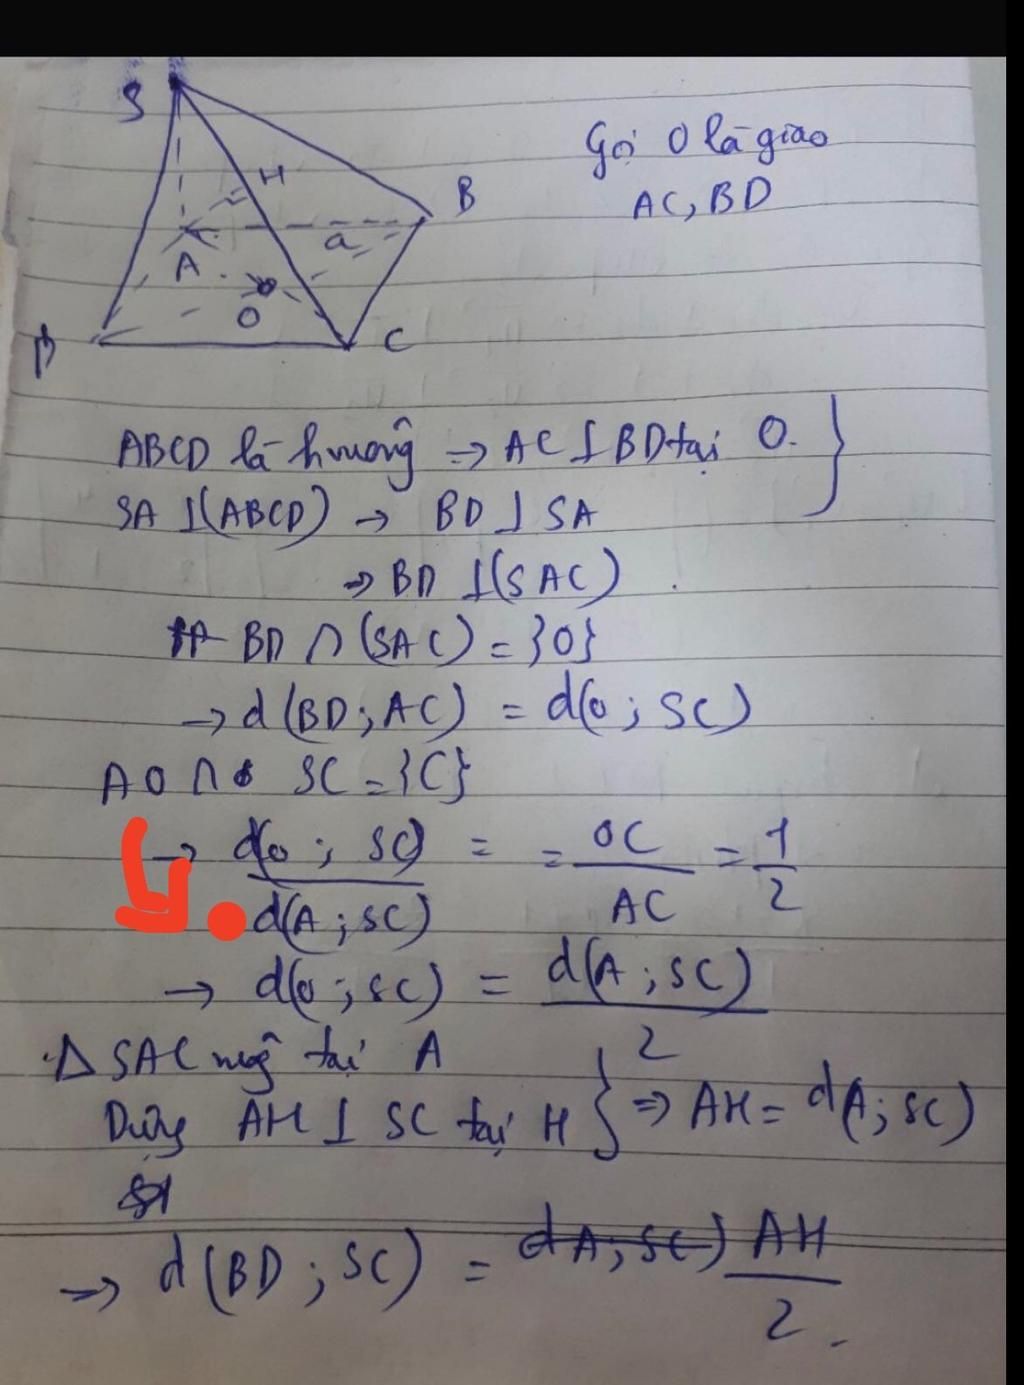 S
H
B
a
A
O
D
C
Gọi O là giao
AC, BD
ABCD là hvuông ⇒ AC ⊥ BD tại O.
SA ⊥ (ABCD) → BD ⊥ SA
⇒ BD ⊥ (SAC)
BD ∩ (SAC) = {O}
→ d(BD; AC) = d(O; SC)
AO ∩ SC = {C}
→ d(O; SC) / d(A; SC) = = OC / AC = 1/2
→ d(O; SC) = d(A; SC) / 2
Δ SAC vuông tại A
Dựng AH ⊥ SC tại H } ⇒ AH = d A; SC)
→ d(BD; SC) = AH / 2.